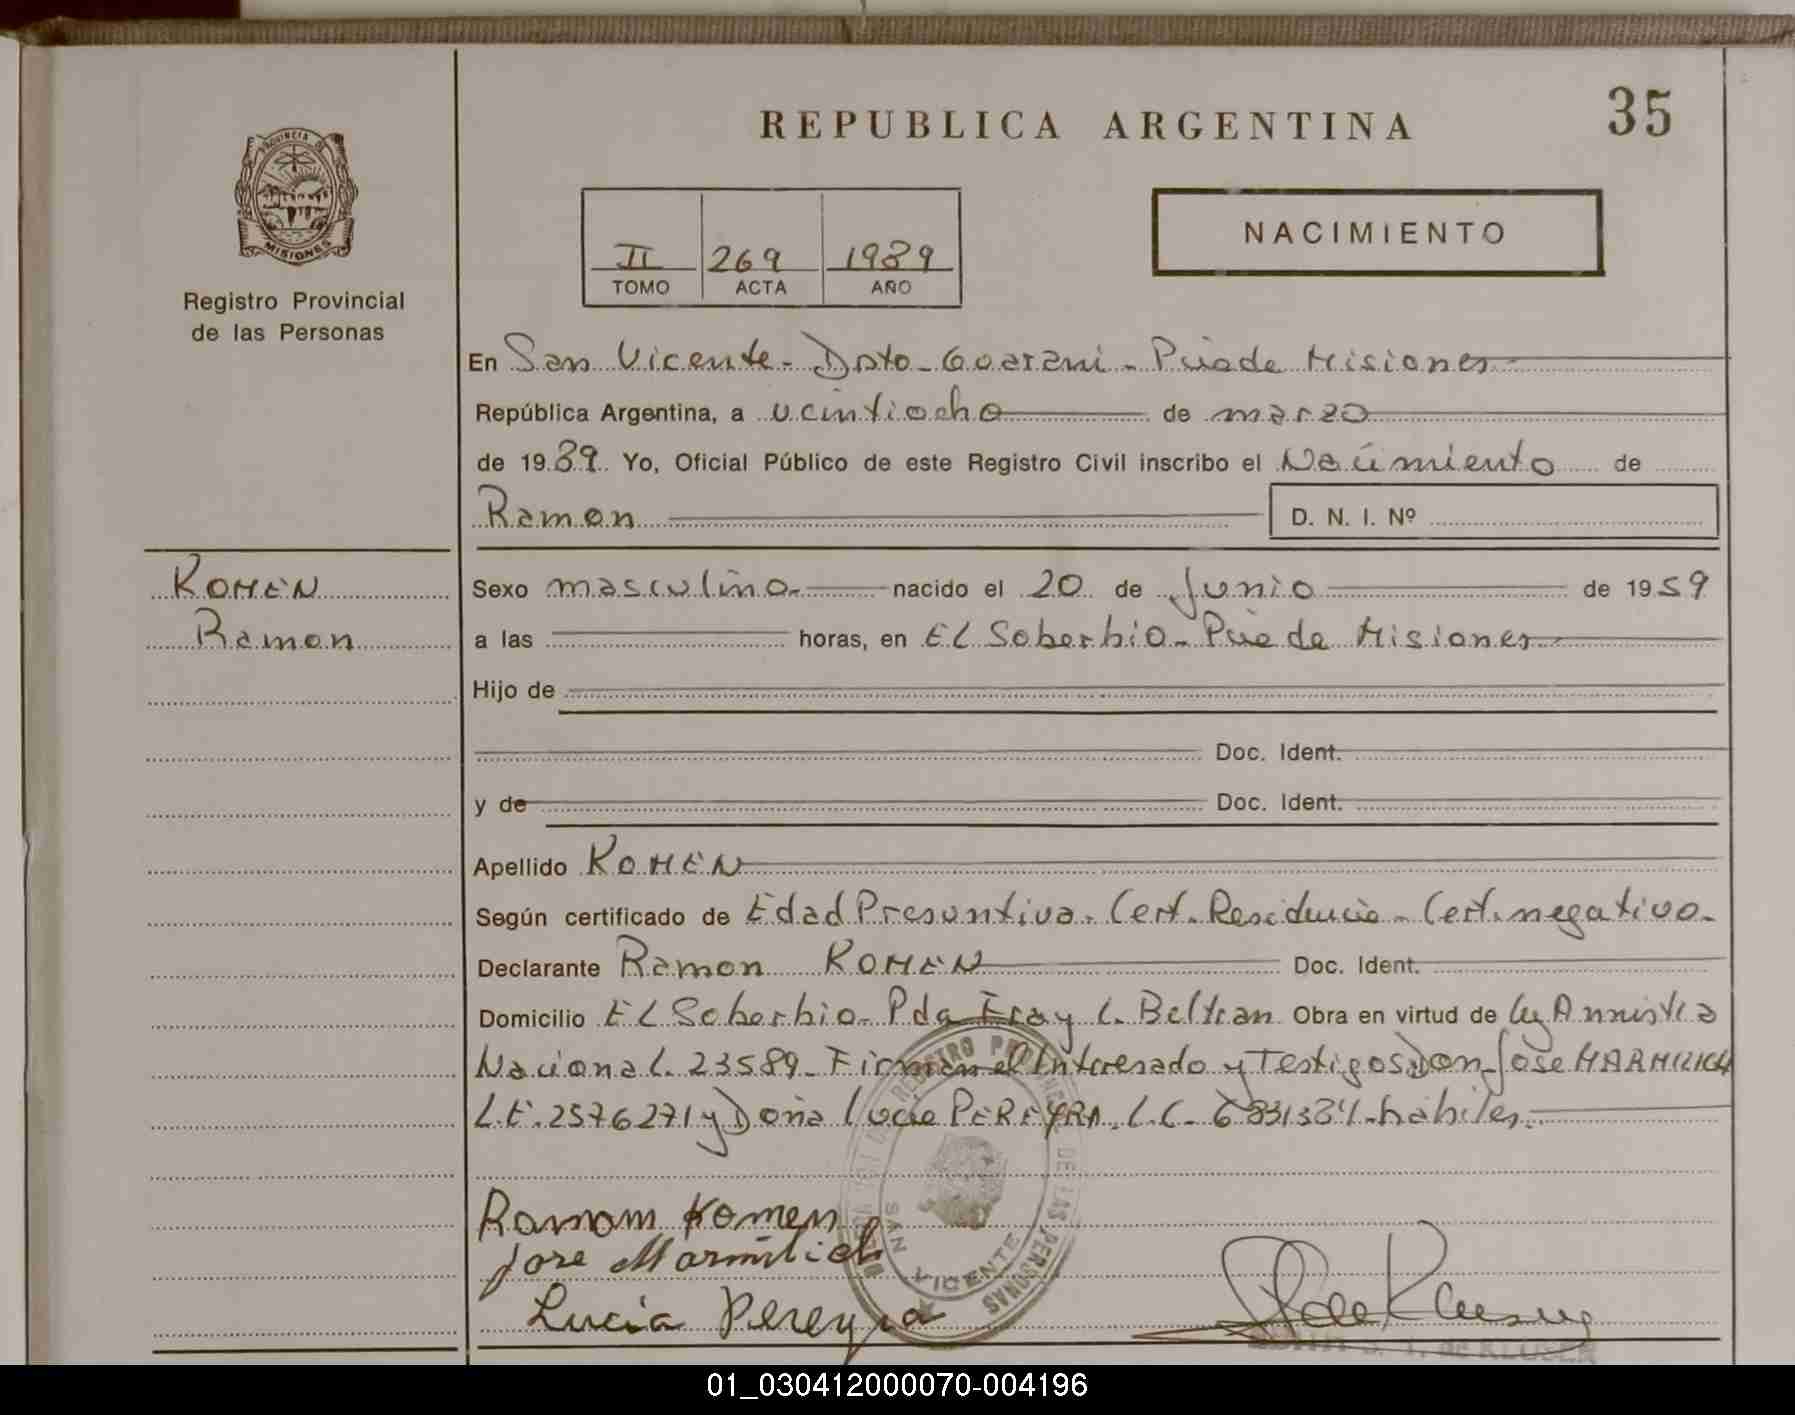 REPUBLICA ARGENTINA
35
PROVINCIA DE
MISIONES
Registro Provincial
de las Personas
II 269 1989
TOMO ACTA AÑO
NACIMIENTO
En San Vicente - Dpto - Guarani - Pcia de Misiones
República Argentina, a veintiocho de marzo
de 1989. Yo, Oficial Público de este Registro Civil inscribo el Nacimiento de
Ramon D. N. I. Nº
KOMEN
Ramon
Sexo masculino.- nacido el 20 de Junio de 1959
a las horas, en EL Soberbio - Pcia de Misiones
Hijo de
Doc. Ident.
y de Doc. Ident.
Apellido KOMEN
Según certificado de Edad Presuntiva. Cert. Residencia - Cert. negativo.
Declarante Ramon KOMEN Doc. Ident.
Domicilio EL Soberbio - Pda Fray L. Beltran Obra en virtud de Ley Amnistia
Nacional. 23589 - Firman el Interesado y Testigos Don Jose MARMILICH
L.E. 2576271 y Doña Lucia PEREYRA. L.C. 6831384 - habiles.-
Ramom Komen
Jose Marmilich
Lucia Pereyra
REGISTRO PROVINCIAL DE LAS PERSONAS
SAN VICENTE
de KLUSEN
01_030412000070-004196